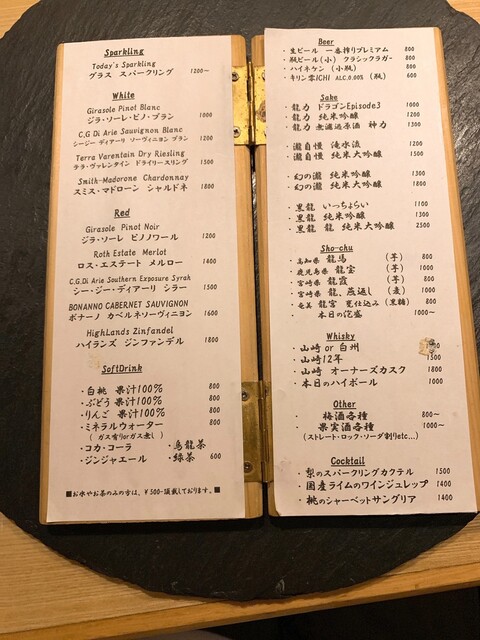 Sparkling
Today's Sparkling
グラス スパークリング 1200~
White
Girasole Pinot Blanc
ジラ・ソーレ・ピノ・ブラン 1000
C,G Di Arie Sauvignon Blanc
シージー ディアーリ ソーヴィニヨン ブラン 1200
Terra Varentain Dry Riesling
テラ・ヴァレンタイン ドライリースリング 1500
Smith-Madorone Chardonnay
スミス・マドローン シャルドネ 1800
Red
Girasole Pinot Noir
ジラ・ソーレ ピノノワール 1200
Roth Estate Merlot
ロス・エステート メルロー 1400
C.G.Di Arie Southern Exposure Syrah
シー・ジー・ディアーリ シラー 1500
BONANNO CABERNET SAUVIGNON
ボナーノ カベルネソーヴィニヨン 1600
HighLands Zinfandel
ハイランズ ジンファンデル 1800
SoftDrink
・白桃 果汁100% 800
・ぶどう 果汁100% 800
・りんご 果汁100% 800
・ミネラルウォーター 800
(ガス有りorガス無し)
・コカ・コーラ ・烏龍茶
・ジンジャエール ・緑茶 600
■お水やお茶のみの方は、¥500-頂戴しております。■
Beer
・生ビール 一番搾りプレミアム 800
・瓶ビール(小) クラシックラガー 800
・ハイネケン (小瓶) 800
・キリン零ICHI ALC.0.00% (瓶) 600
Sake
・龍力 ドラゴンEpisode3 1000
・龍力 純米吟醸 1200
・龍力 無濾過原酒 神力 1300
・瀧自慢 滝水流 1200
・瀧自慢 純米大吟醸 1500
・幻の瀧 純米吟醸 1300
・幻の瀧 純米大吟醸 1800
・黒龍 いっちょらい 1100
・黒龍 純米吟醸 1300
・黒龍 龍 純米大吟醸 2500
Sho-chu
・高知県 龍馬 (芋) 800
・鹿児島県 龍宝 (芋) 1000
・宮崎県 龍霞 (芋) 800
・宮崎県 龍、蒸返し (麦) 1000
・奄美 龍宮 甕仕込み (黒糖) 800
・本日の泡盛 1000~
Whisky
・山崎 or 白州
・山崎12年 1500
・山崎 オーナーズカスク 1800
・本日のハイボール 1000
Other
・梅酒各種 800~
・果実酒各種 1000~
(ストレート・ロック・ソーダ割りetc...)
Cocktail
・梨のスパークリングカクテル 1500
・国産ライムのワインジュレップ 1400
・桃のシャーベットサングリア 1400